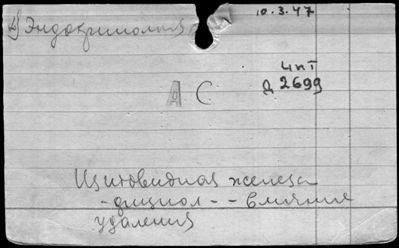 Эндокринология
10.3.47
А С
Д 2699
Щитовидная железа
- физиол - - влияние
удаления